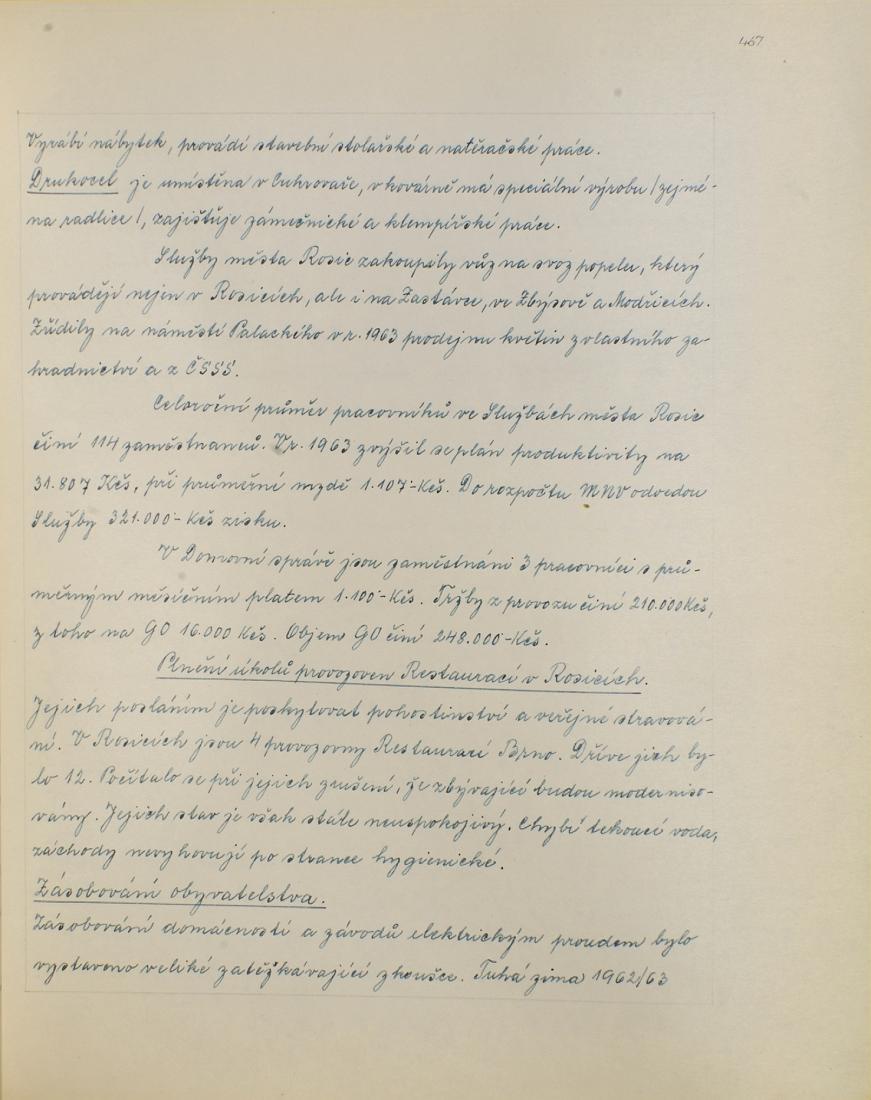 467
Vyrábí nábytek, provádí stavební stolařské a natěračské práce.
Drukocel je umístěna v Cukrovaře, v kovárně má speciální výrobu /zejmé-
na radlice/, zajišťuje zámečnické a klempířské práce.
Služby města Rosic zakoupily vůz na svoz popela, který
provádějí nejen v Rosicích, ale i na Zastávce, ve Zbýsově a Modřicích.
Zřídily na náměstí Palackého v r. 1963 prodejnu květin z vlastního za-
hradnictví a z ČSSS.
Celoroční průměr pracovníků ve Službách města Rosic
činí 114 zaměstnanců. V r. 1963 zvýšil se plán produktivity na
31.807 Kčs, při průměrné mzdě 1.107·- Kčs. Do rozpočtu MNV odvedou
Služby 321.000·- Kčs zisku.
V Domovní správě jsou zaměstnáni 3 pracovníci s prů-
měrným měsíčním platem 1.100·- Kčs. Tržby z provozu činí 210.000 Kčs,
z toho na GO 16.000 Kčs. Objem GO činí 248.000·- Kčs.
Plnění úkolů provozoven Restaurací v Rosicích.
Jejich posláním je poskytovat pohostinství a veřejné stravová-
ní. V Rosicích jsou 4 provozovny Restaurací Brno. Dříve jich by-
lo 12. Počítalo se při jejich zrušení, že zbývající budou moderniso-
vány. Jejich stav je však stále neuspokojivý. Chybí tekoucí voda,
záchody nevyhovují po stránce hygienické.
Zásobování obyvatelstva.
Zásobování domácností a závodů elektrickým proudem bylo
vystaveno veliké zatěžkávající zkoušce. Tuhá zima 1962/63